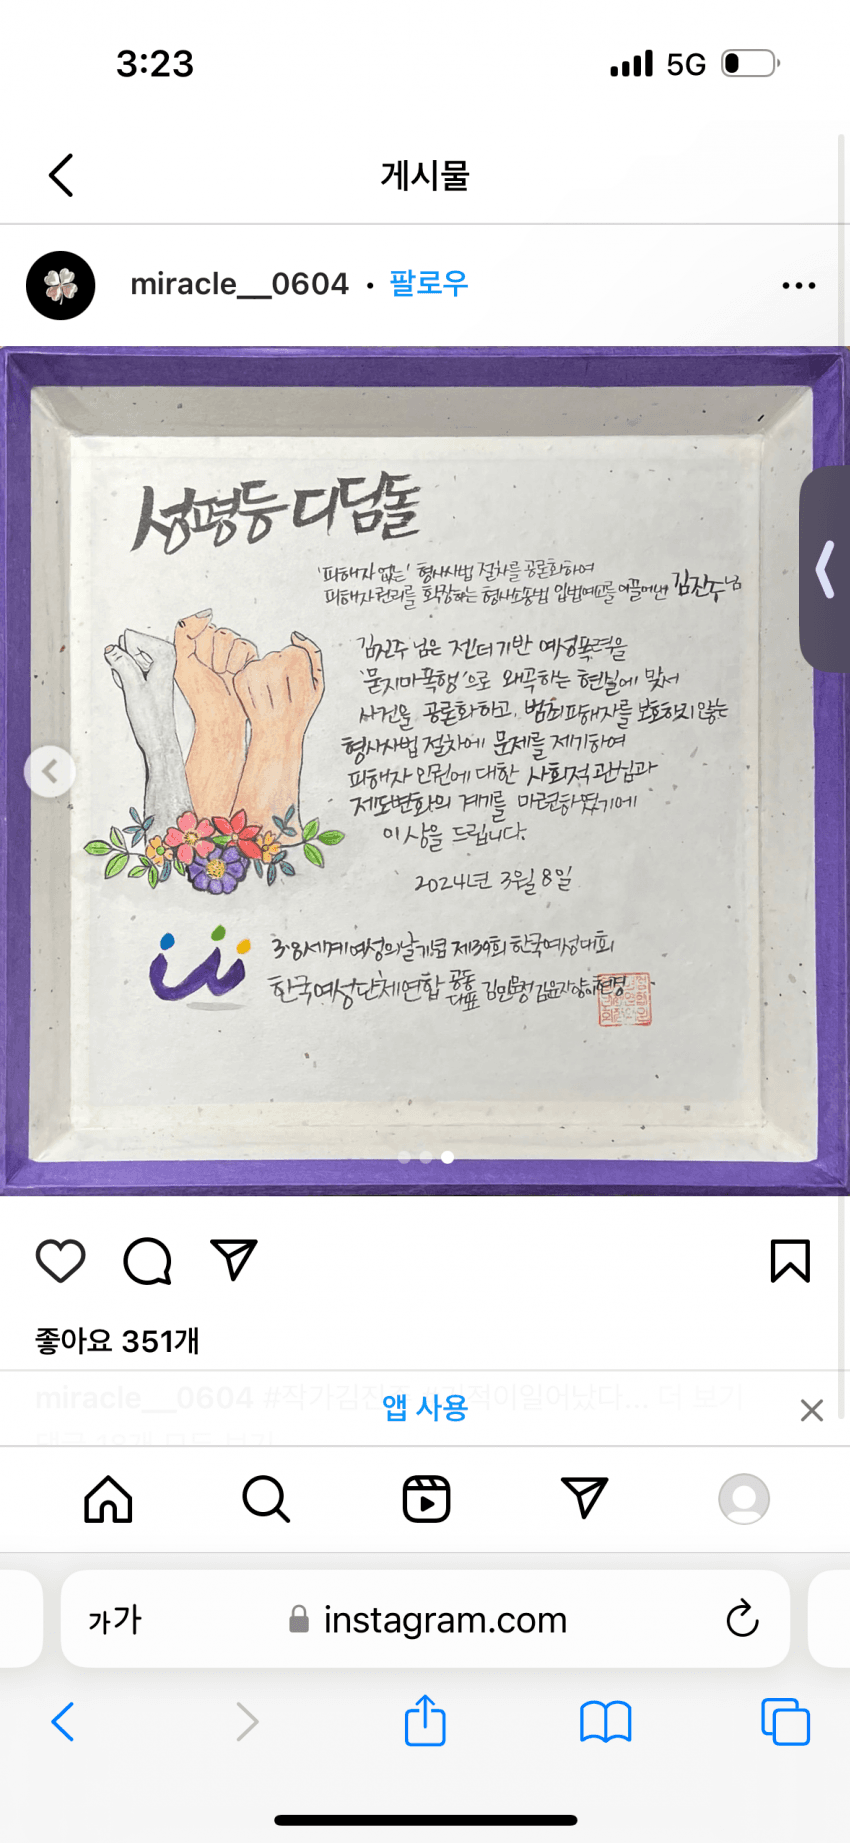 3:23
5G
게시물
miracle__0604 • 팔로우
성평등 디딤돌
'피해자 없는' 형사사법 절차를 공론화하여
피해자권리를 확장하는 형사소송법 입법예고를 이끌어낸 김진주님
김진주님은 젠더기반 여성폭력을
'묻지마폭행'으로 왜곡하는 현실에 맞서
사건을 공론화하고, 범죄피해자를 보호하지 않는
형사사법 절차에 문제를 제기하여
피해자 인권에 대한 사회적 관심과
제도변화의 계기를 마련하였기에
이 상을 드립니다.
2024년 3월 8일
3·8세계여성의날기념 제39회 한국여성대회
한국여성단체연합 공동
대표 김민문정 김윤자 양이현경
좋아요 351개
miracle__0604 #작가김진주 #기적이일어났다... 더 보기
댓글 18개 모두 보기
앱 사용
가가
instagram.com